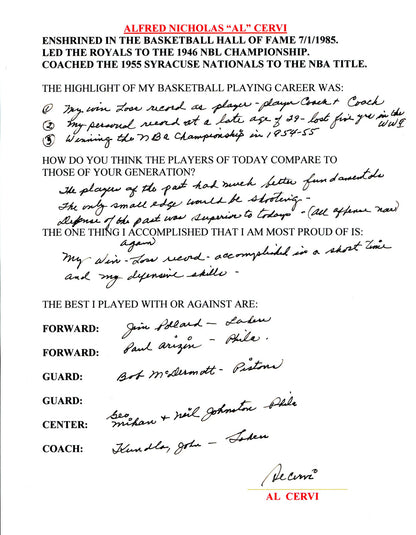 ALFRED NICHOLAS “AL” CERVI
ENSHRINED IN THE BASKETBALL HALL OF FAME 7/1/1985.
LED THE ROYALS TO THE 1946 NBL CHAMPIONSHIP.
COACHED THE 1955 SYRACUSE NATIONALS TO THE NBA TITLE.
THE HIGHLIGHT OF MY BASKETBALL PLAYING CAREER WAS:
① My win loss record as player - player Coach & Coach
② My personal record at a late age of 29 - lost five yrs in the WW II
③ Winning the NBA Championship in 1954-55
HOW DO YOU THINK THE PLAYERS OF TODAY COMPARE TO
THOSE OF YOUR GENERATION?
The player of the past had much better fundamentals
The only small edge would be shooting -
Defense of the past was superior to todays - (all offense now)
THE ONE THING I ACCOMPLISHED THAT I AM MOST PROUD OF IS:
again
My Win - loss record - accomplished in a short time
and my defensive skills -
THE BEST I PLAYED WITH OR AGAINST ARE:
FORWARD: Jim Pollard - Lakers
FORWARD: Paul Arizin - Phila.
GUARD: Bob McDermott - Pistons
GUARD:
CENTER: Geo Mikan & Neil Johnston - Phila
COACH: Kundla, John - Lakers
Al Cervi
AL CERVI